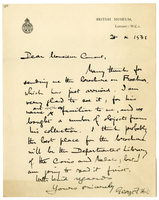 BRITISH MUSEUM,
LONDON: W.C.1.
1931
Dear Monsieur Cumont,
Many thanks for
sending me the brochure on
which has just arrived. I am
very glad to see it, for his
name is familiar to us and we
bought a number of objects from
his collection. I think probably
the best place for the brochure
will be the Departmental Library
of the Coins and Medals; but I
am going to read it first.
Yours sincerely
George Hill